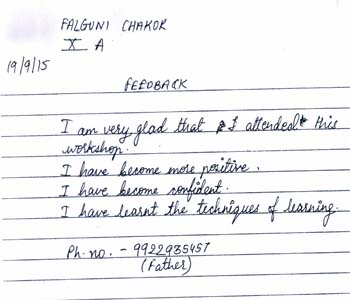 FALGUNI CHAKOR
X A
19/9/15
FEEDBACK
I am very glad that I attended this
workshop.
I have become more positive.
I have become confident.
I have learnt the techniques of learning.
Ph. no. - 9922935457
(Father)